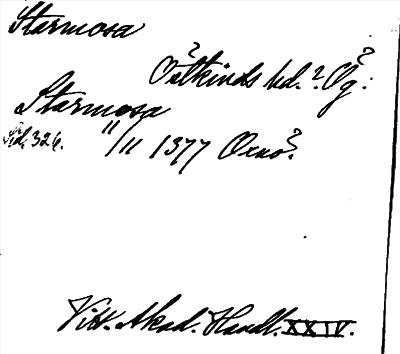 Starmosa
Östkinds hd.? Ög?:
Starmosa
sid. 326. 11/11 1377 Ornö?.
Vitt. Akad. Handl. XXIV.